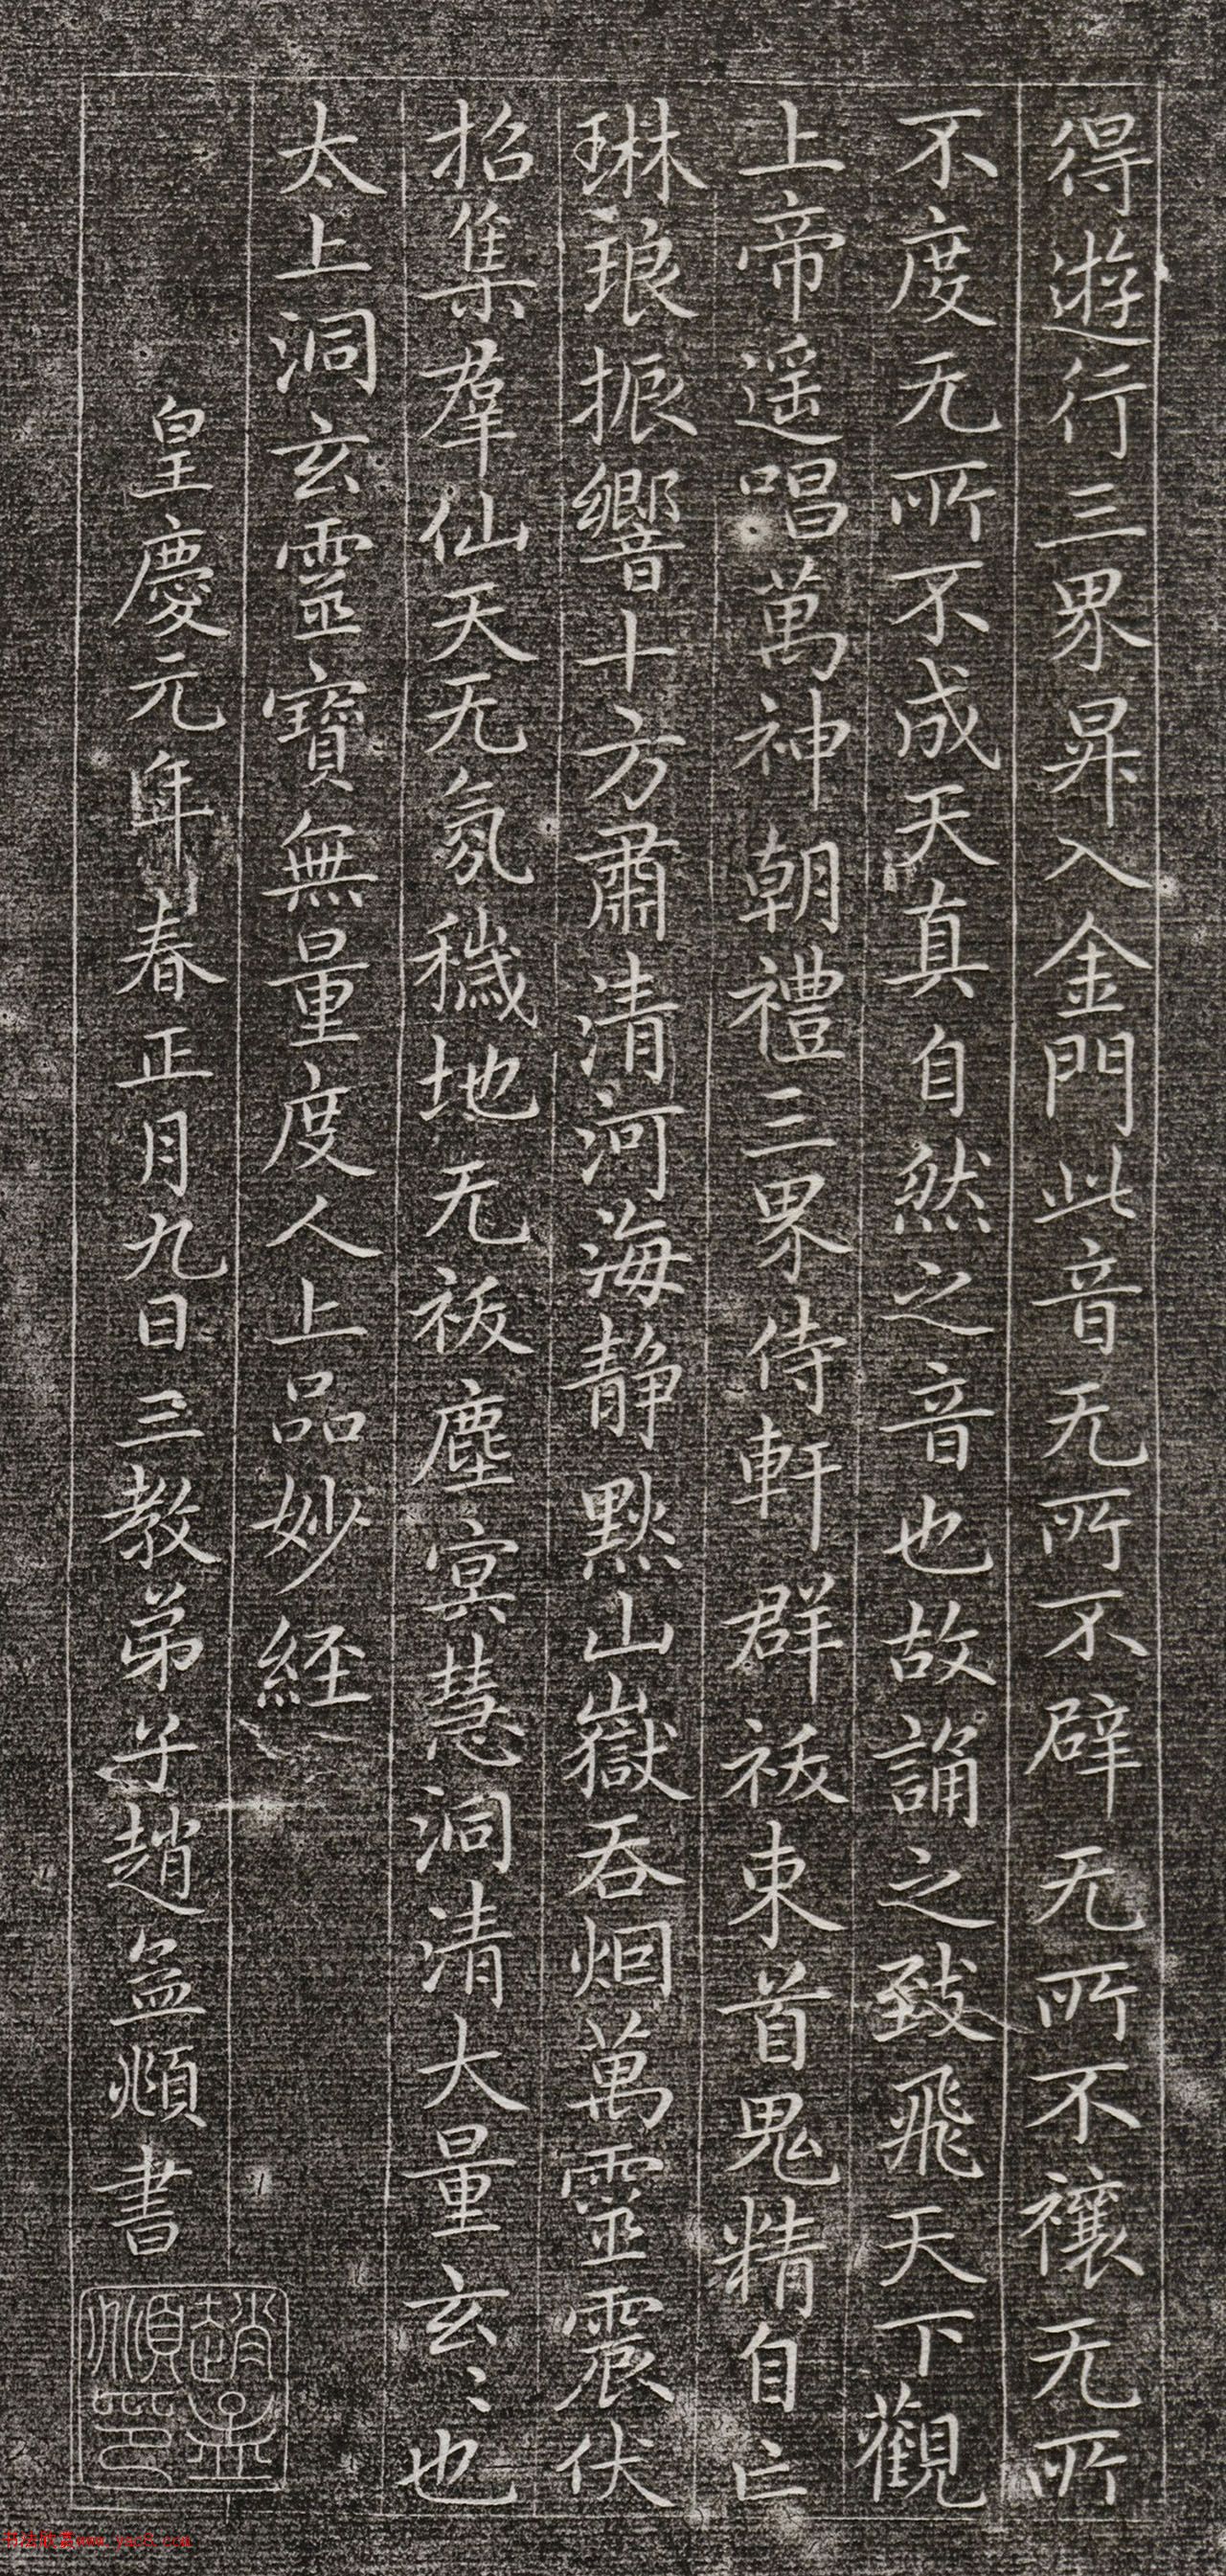 得遊行三界昇入金門此音无所不辟无所不禳无所
不度无所不成天真自然之音也故誦之致飛天下觀
上帝遥唱萬神朝禮三界侍軒群祅束首鬼精自亡
琳琅振響十方肅清河海静默山嶽吞烟萬靈震伏
招集羣仙天无氛穢地无祅塵冥慧洞清大量玄〻也
太上洞玄靈寶無量度人上品妙經
皇慶元年春正月九日三教弟子趙孟頫書
趙孟頫印